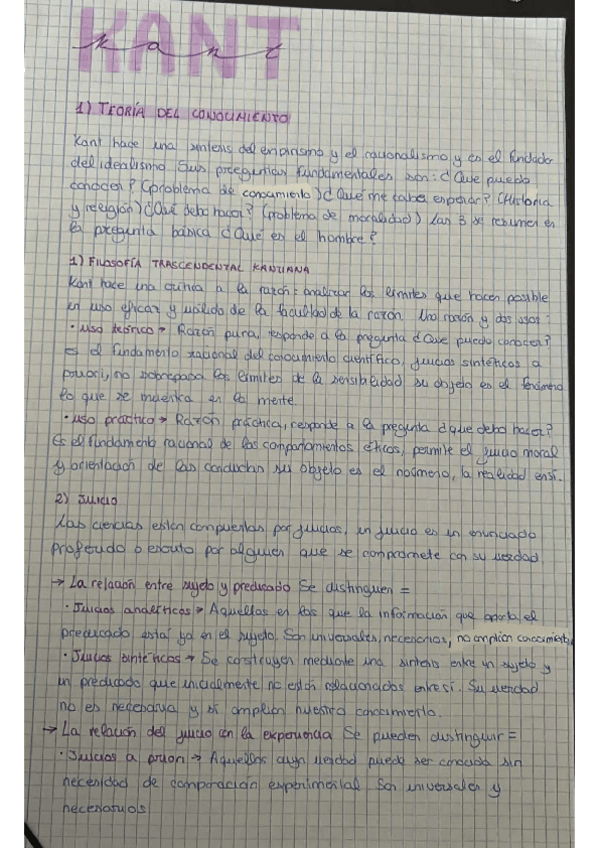 KANT
Kant
1) TEORÍA DEL CONOCIMIENTO
Kant hace una sintesis del empirismo y el racionalismo y es el fundador
del idealismo Sus preguntas fundamentales son: ¿Que puedo
conocer? (problema de conocimiento) ¿Qué me cabe esperar? (Historia
y religión) ¿Qué debo hacer? (problema de moralidad) Las 3 se resumen en
la pregunta básica ¿Qué es el hombre?
1) FILOSOFÍA TRASCENDENTAL KANTIANA
Kant hace una crítica a la razón: analizar los límites que hacen posible
un uso eficaz y válido de la facultad de la razón Una razón y dos usos:
· uso teórico → Razón pura, responde a la pregunta ¿Que puedo conocer?
es el fundamento racional del conocimiento científico, juicios sintéticos a
priori, no sobrepasa los límites de la sensibilidad su objeto es el fenómeno
lo que se muestra en la mente.
· uso práctico → Razón práctica, responde a la pregunta ¿que debo hacer?
Es el fundamento racional de los comportamientos éticos, permite el juicio moral
y orientación de las conductas su objeto es el noúmeno, la realidad en sí.
2) JUICIO
Las ciencias están compuestas por juicios, un juicio es un enunciado
proferido o escrito por alguien que se compromete con su verdad
→ La relación entre sujeto y predicado Se distinguen =
· Juicios analíticos → Aquellos en los que la información que aporta el
predicado está ya en el sujeto. Son universales, necesarios, no amplían conocimiento
· Juicios sintéticos → Se construyen mediante una síntesis entre un sujeto y
un predicado que inicialmente no están relacionados entre sí. Su verdad
no es necesaria y sí amplían nuestro conocimiento.
→ La relación del juicio con la experiencia Se pueden distinguir =
· Juicios a priori → Aquellos cuya verdad puede ser conocida sin
necesidad de comparación experimental Son universales y
necesarios